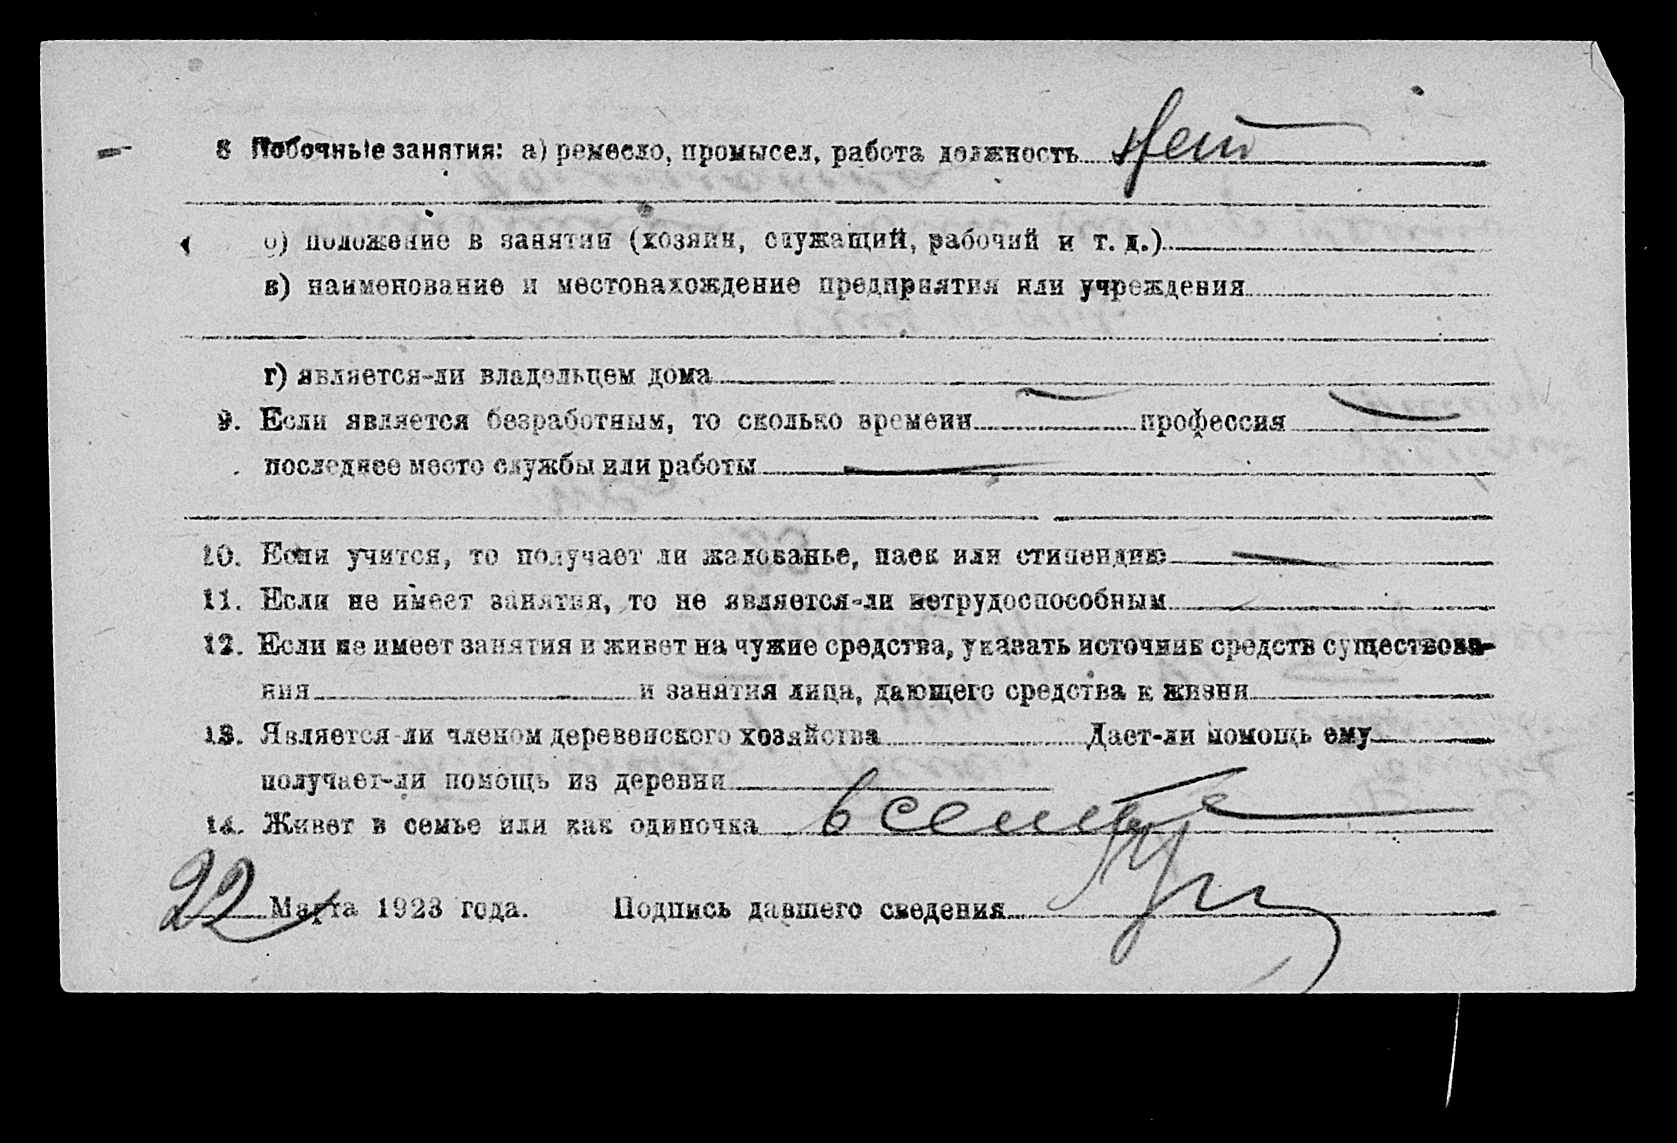 8 Побочные занятия: а) ремесло, промысел, работа должность Нет
б) положение в занятии (хозяин, служащий, рабочий и т. д.)
в) наименование и местонахождение предприятия или учреждения
г) является-ли владельцем дома
9. Если является безработным, то сколько времени профессия
последнее место службы или работы
10. Если учится, то получает ли жалованье, паек или стипендию
11. Если не имеет занятия, то не является-ли нетрудоспособным
12. Если не имеет занятия и живет на чужие средства, указать источник средств существова-
ния и занятия лица, дающего средства к жизни
13. Является-ли членом деревенского хозяйства Дает-ли помощь ему
получает-ли помощь из деревни
14. Живет в семье или как одиночка в семье
22 Марта 1923 года. Подпись давшего сведения